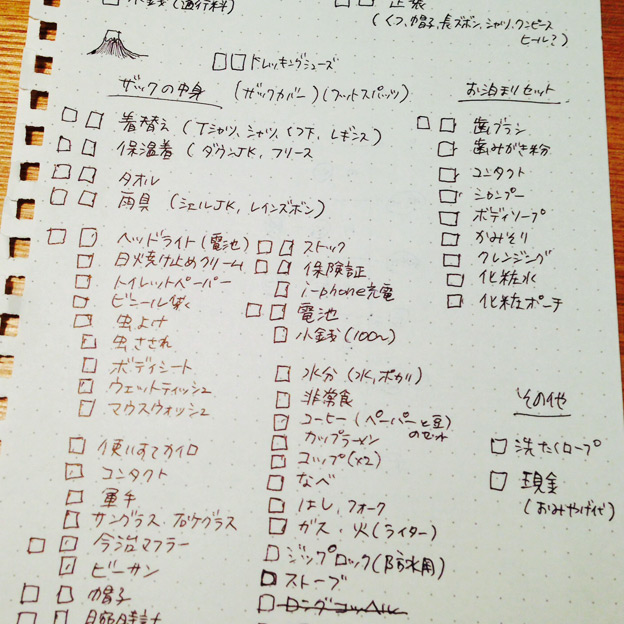 小銭(通行料)
正装
(くつ、帽子、長ズボン、シャツ、ワンピース
ヒール?)
トレッキングシューズ
ザックの中身
(ザックカバー)(フットスパッツ)
着替え(Tシャツ、シャツ、くつ下、レギンス)
保温着(ダウンJK、フリース
タオル
雨具(シェルJK、レインズボン)
ヘッドライト(電池)
日焼け止めクリーム
トイレットペーパー
ビニール袋
虫よけ
虫さされ
ボディシート
ウェットティッシュ
マウスウォッシュ
使いすてカイロ
コンタクト
軍手
サングラス
今治マフラー
ビーサン
帽子
腕時計
ストック
保険証
i-phone充電
電池
小銭(100~)
水分(水、ポカリ)
非常食
コーヒー(ペーパーと豆)
のセット
カップラーメン
コップ(×2)
なべ
はし、フォーク
ガス・火(ライター)
ジップロック(防水用)
ストーブ
お泊まりセット
歯ブラシ
歯みがき粉
コンタクト
シャンプー
ボディソープ
かみそり
クレンジング
化粧水
化粧ポーチ
その他
洗たくロープ
現金
(おみやげ代)